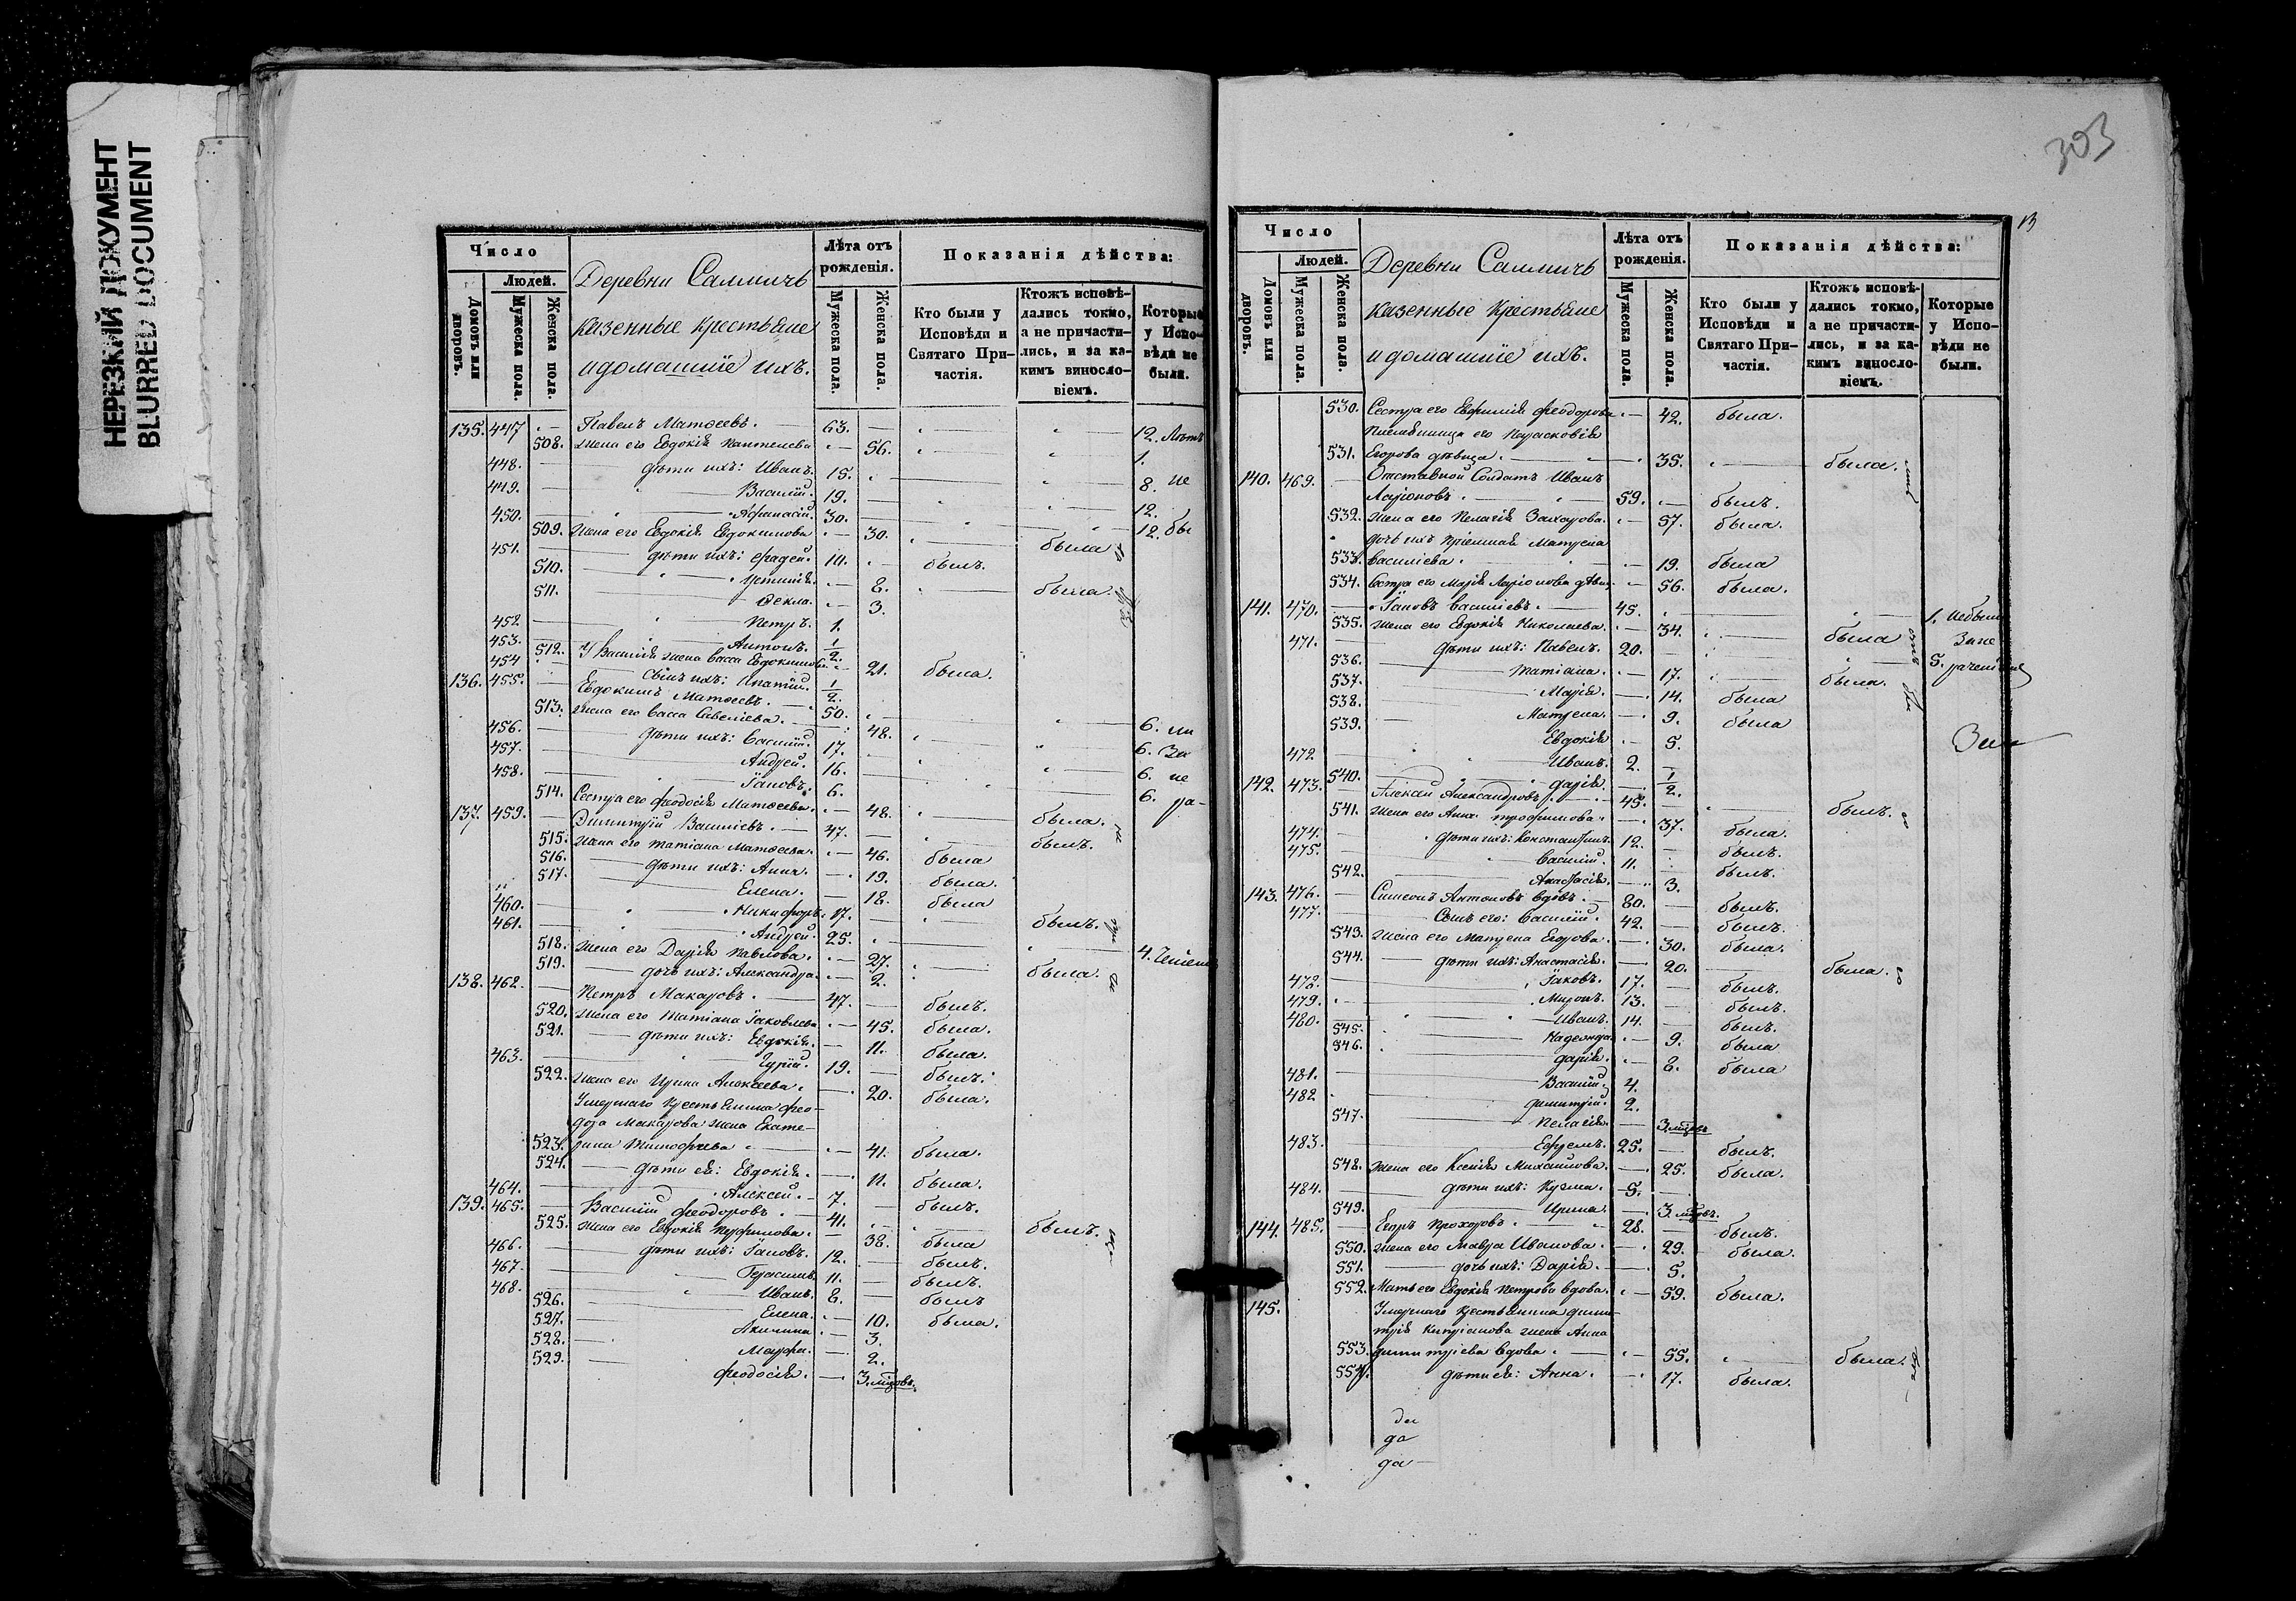 НЕРЕЗКИЙ ДОКУМЕНТ
BLURRED DOCUMENT
Число
Людей.
Домовъ или дворовъ.
Мужеска пола.
Женска пола.
Деревни Саммичь
казенные крестьяне
и домашніе ихъ.
Лѣта отъ рожденія.
Мужеска пола.
Женска пола.
Показанія дѣйства:
Кто были у Исповѣди и Святаго При-частія.
Ктожъ исповѣ-дались токмо, а не причасти-лись, и за ка-кимъ виносло-віемъ.
Которые у Испо-вѣди не были.
135. 447 Павелъ Матѳеевъ. 63. 12. Лѣтъ
508. жена его Евдокія Пантелеева 56. 1.
448. дѣти ихъ: Иванъ. 15. 8. не
449. Василій. 19. 12.
450. Афанасій. 30. 12. бы
509. жена его Евдокія Евдокимова 30. была
451. дѣти ихъ: Фадей. 10. былъ.
510. Устинія. 8. была.
511. Ѳекла. 3.
452 Петръ. 1.
453. Антонъ. 1/2.
454 512. У Василія жена Васса Евдокимова 21. была.
Сынъ ихъ: Ипатій. 1/2.
136. 455. Евдокимъ Матѳеевъ. 50. 6.
513. жена его Васса Савеліева. 48. 6. За
456. дѣти ихъ: Василій. 17. 6. не
457. Андрей. 16. 6. ра-
458. Іаковъ. 6.
514. Сестра его Феодосія Матѳеева. 48. была.
137. 459. Димитрій Василіевъ. 47. былъ.
515. жена его Татіана Матѳеева. 46. была
516. дѣти ихъ: Анна. 19. была.
517. Елена. 18. была
460. Никифоръ. 17. былъ.
461. Андрей. 25. 4.
518. жена его Дарія Павлова. 27. была.
519. дочь ихъ: Александра. 2.
138. 462. Петръ Макаровъ. 47. былъ.
520. жена его Татіана Іаковлева 45. была.
521. дѣти ихъ: Евдокія. 11. была.
463. Гурій. 19. былъ.
522. жена его Ирина Алексеева. 20. была.
Умершаго крестьянина Фео-
дора Макарова жена Екате-
523. рина Тимофеева 41. была.
524. дѣти ея: Евдокія. 11. была.
464. Алексей. 7. былъ.
139. 465. Василій Феодоровъ. 41. былъ.
525. жена его Евдокія Перфилова. 38. была
466. дѣти ихъ: Іаковъ. 12. былъ.
467. Герасимъ. 11. былъ.
468. Иванъ. 8. былъ
526. Елена. 10. была.
527. Акилина. 3.
528. Марфа. 2.
529. Феодосія. 3. мцовъ.
303
13
Число
Людей.
Домовъ или дворовъ.
Мужеска пола.
Женска пола.
Деревни Саммичь
казенные крестьяне
и домашніе ихъ.
Лѣта отъ рожденія.
Мужеска пола.
Женска пола.
Показанія дѣйства:
Кто были у Исповѣди и Святаго При-частія.
Ктожъ исповѣ-дались токмо, а не причасти-лись, и за ка-кимъ виносло-віемъ.
Которые у Испо-вѣди не были.
530. Сестра его Евфимія Феодорова 42. была.
Племянница его Парасковія
531. Егорова дѣвица. 35. была.
140. 469. Отставной Солдатъ Иванъ
Ларіоновъ. 59. былъ.
532. жена его Пелагія Захарова. 57. была.
дочь ихъ Пріемная Матрена
533. Василіева. 19. была
534. Сестра его Марія Ларіонова 56. была.
141. 470. Іаковъ Василіевъ. 45. 1. Небыли
535. жена его Евдокія Николаева. 34. была За не
471. дѣти ихъ: Павелъ. 20. 5. раченіемъ
536. Татіана. 17. была.
537. Марія. 14. была
538. Матрена. 9. была
539. Евдокія 5.
472. Иванъ. 2.
540. Дарія. 1/2.
142. 473. Алексей Александровъ. 45. былъ.
541. жена его Анна Трофимова. 37. была.
474. дѣти ихъ: Константинъ. 12. былъ.
475. Василій. 11. былъ.
542. Анастасія. 3.
143. 476. Симеонъ Антоновъ вдовъ. 80. былъ.
477. Сынъ его: Василій. 42. былъ.
543. жена его Матрена Егорова. 30. была.
544. дѣти ихъ: Анастасія. 20. была.
478. Іаковъ. 17. былъ.
479. Миронъ. 13. былъ.
480. Иванъ. 14. былъ.
545. Надежда. 9. была
546. Дарія. 8. была
481. Василій. 4.
482 Димитрій. 2.
547. Пелагія. 3. мцовъ
483. Ефремъ. 25. былъ.
548. жена его Ксенія Михайлова. 25. была.
484. дѣти ихъ: Кузма. 5.
549. Ирина. 3. мцовъ.
144. 485. Егоръ Прохоровъ. 28. былъ.
550. жена его Мавра Иванова. 29. была.
551. дочь ихъ: Дарія. 5.
552. Мать его Евдокія Петрова вдова. 59. была.
145. Умершаго крестьянина Дими-
трія Кипріанова жена Анна
553. Димитріева вдова. 55. была.
554. дѣти ея: Анна. 17. была.
да
да